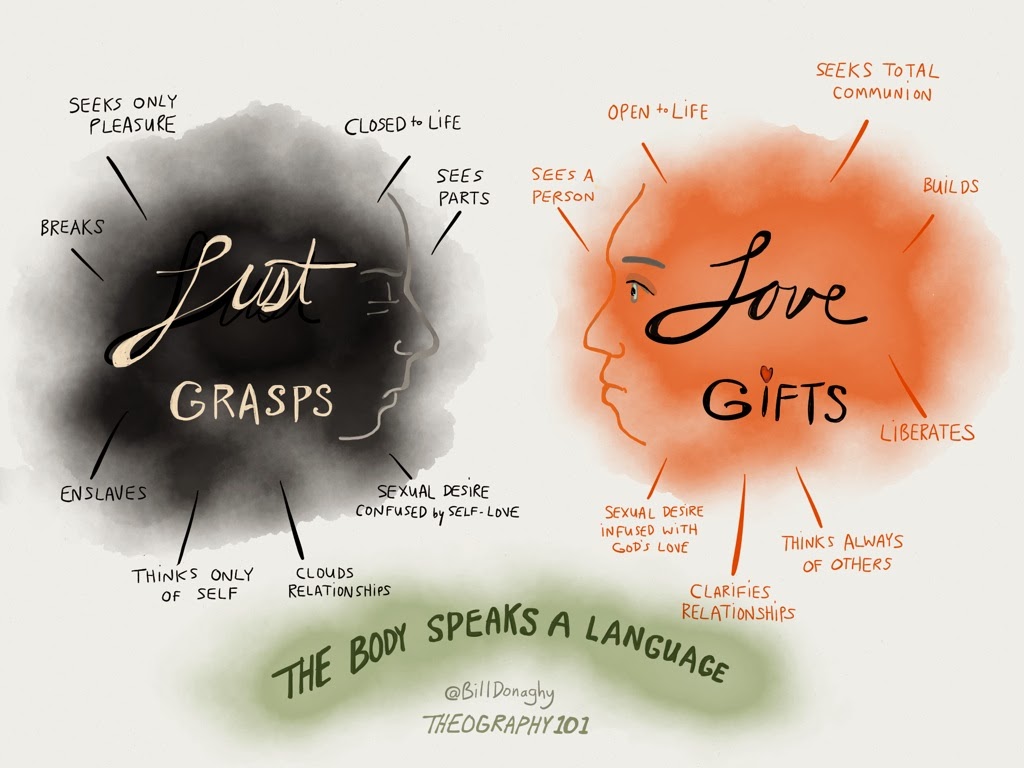 SEEKS ONLY
PLEASURE
CLOSED to LIFE
SEES
PARTS
BREAKS
Lust
GRASPS
ENSLAVES
THINKS ONLY
OF SELF
CLOUDS
RELATIONSHIPS
SEXUAL DESIRE
CONFUSED by SELF-LOVE
SEEKS TOTAL
COMMUNION
OPEN to LIFE
SEES A
PERSON
BUILDS
Love
GiFTS
LIBERATES
SEXUAL DESIRE
INFUSED WITH
GOD'S LOVE
THINKS ALWAYS
OF OTHERS
CLARIFIES
RELATIONSHIPS
THE BODY SPEAKS A LANGUAGE
@BillDonaghy
THEOGRAPHY101